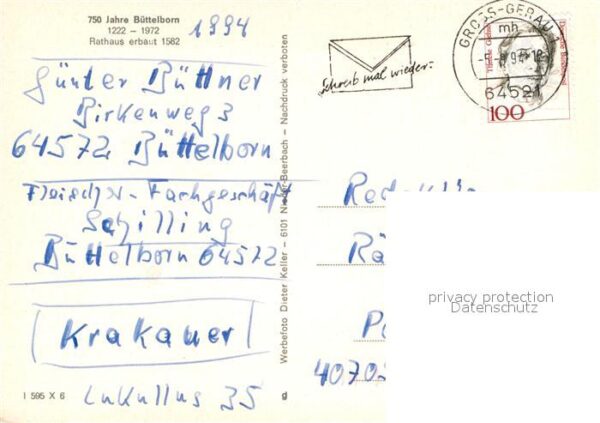 750 Jahre Büttelborn
1222 – 1972
Rathaus erbaut 1582
1994
Günter Büttner
Birkenweg 3
64572 Büttelborn
Fleisch u. Fachgeschäft
Schilling
Büttelborn 64572
Krakauer
Lukullus 35
I 595 X 6
d
Werbefoto Dieter Keller – 6101 Nieder-Beerbach – Nachdruck verboten
Schreib mal wieder
GROSS-GERAU 1
mh
64521
Deutsche Bundespost
100
Redaktion
Rä
Po
4070
privacy protection
Datenschutz